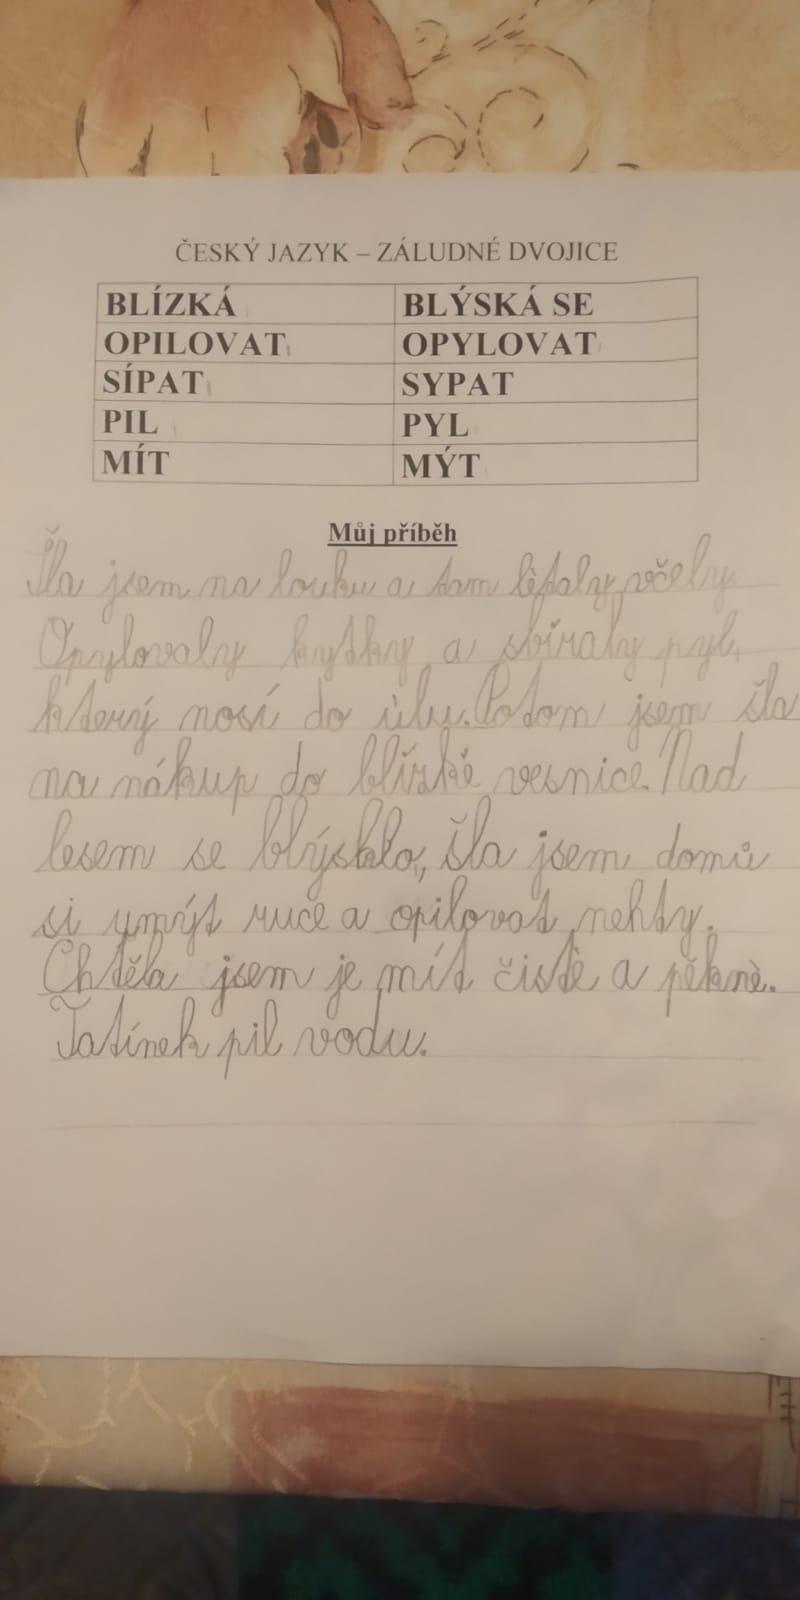 ČESKÝ JAZYK – ZÁLUDNÉ DVOJICE
BLÍZKÁ BLÝSKÁ SE
OPILOVAT OPYLOVAT
SÍPAT SYPAT
PIL PYL
MÍT MÝT
Můj příběh
Šla jsem na louku a tam létaly včely.
Opylovaly kytky a sbíraly pyl,
který nosí do úlu. Potom jsem šla
na nákup do blízké vesnice. Nad
lesem se blýsklo, šla jsem domů
si umýt ruce a opilovat nehty.
Chtěla jsem je mít čisté a pěkné.
Tatínek pil vodu.